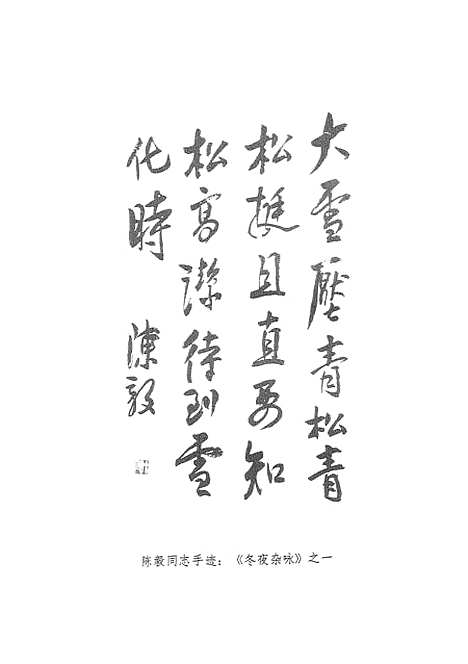 大雪壓青松青
松挺且直要知
松高潔待到雪
化時 陳毅
陈毅同志手迹：《冬夜杂咏》之一